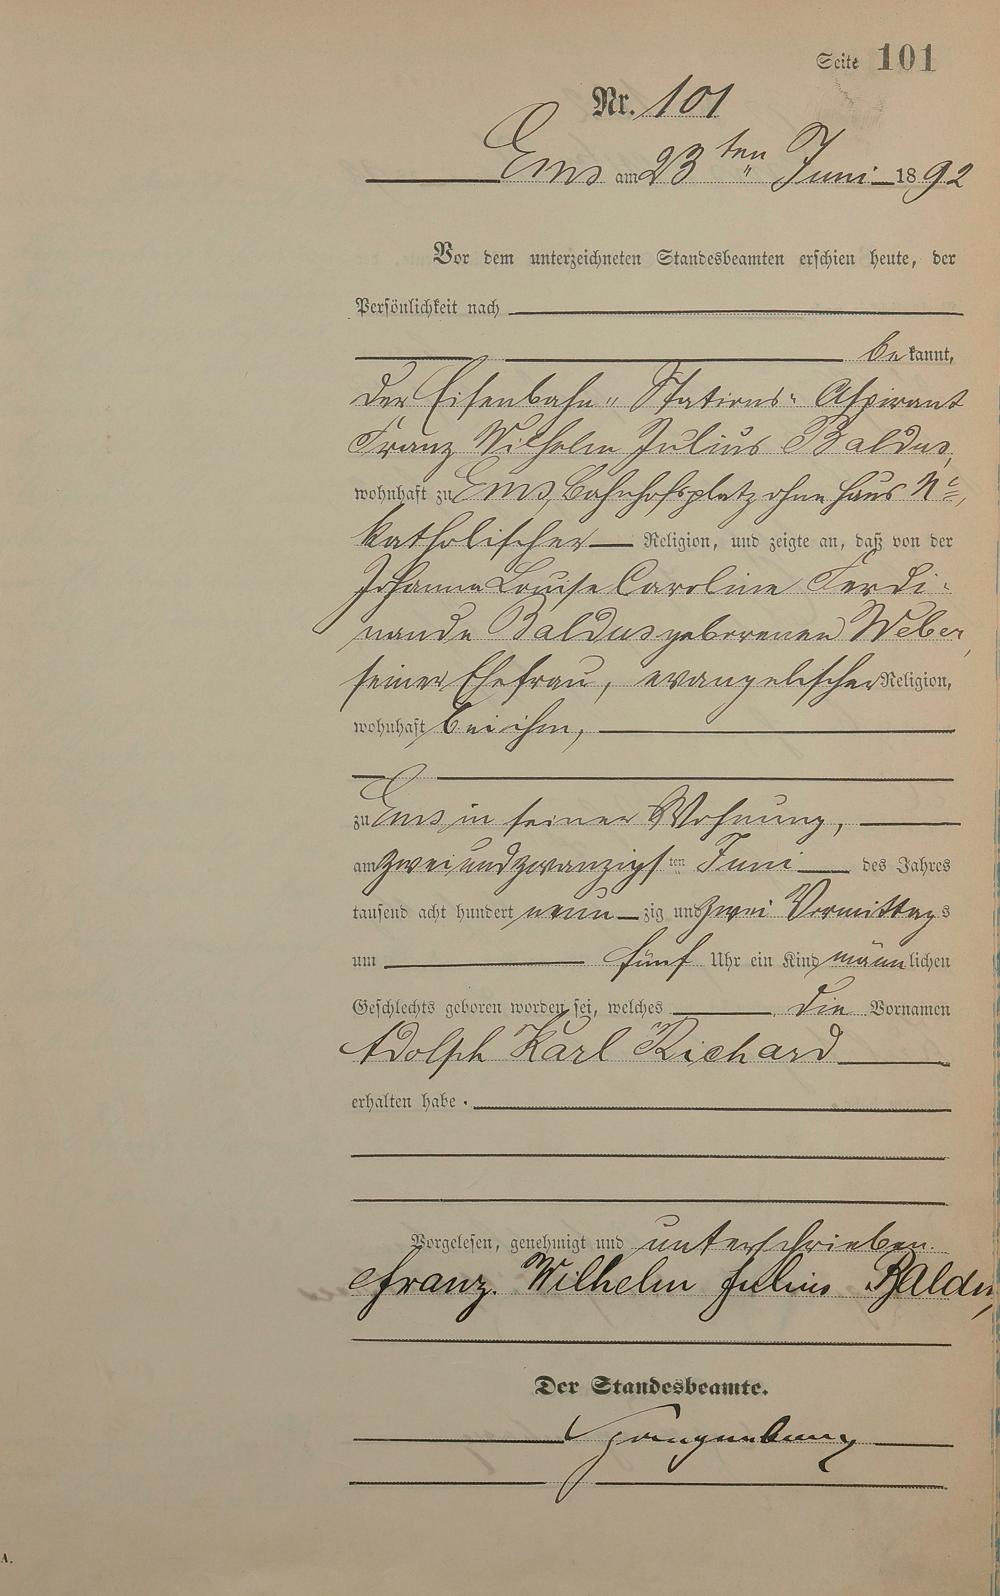 Seite 101
Nr. 101
Ems am 23ten Juni 1892
Vor dem unterzeichneten Standesbeamten erschien heute, der
Persönlichkeit nach
bekannt,
der Eisenbahn-Stations-Aspirant
Franz Wilhelm Julius Baldus,
wohnhaft zu Ems, Bahnhofsplatz ohne Haus No,
katholischer Religion, und zeigte an, daß von der
Johanna Louise Caroline Ferdi-
nande Baldus geborenen Weber,
seiner Ehefrau, evangelischer Religion,
wohnhaft bei ihm,
zu Ems in seiner Wohnung,
am zweiundzwanzigsten Juni des Jahres
tausend acht hundert neunzig und zwei Vormittags
um fünf Uhr ein Kind männlichen
Geschlechts geboren worden sei, welches die Vornamen
Adolph Karl Richard
erhalten habe.
Vorgelesen, genehmigt und unterschrieben.
Franz Wilhelm Julius Baldus
Der Standesbeamte.
A.